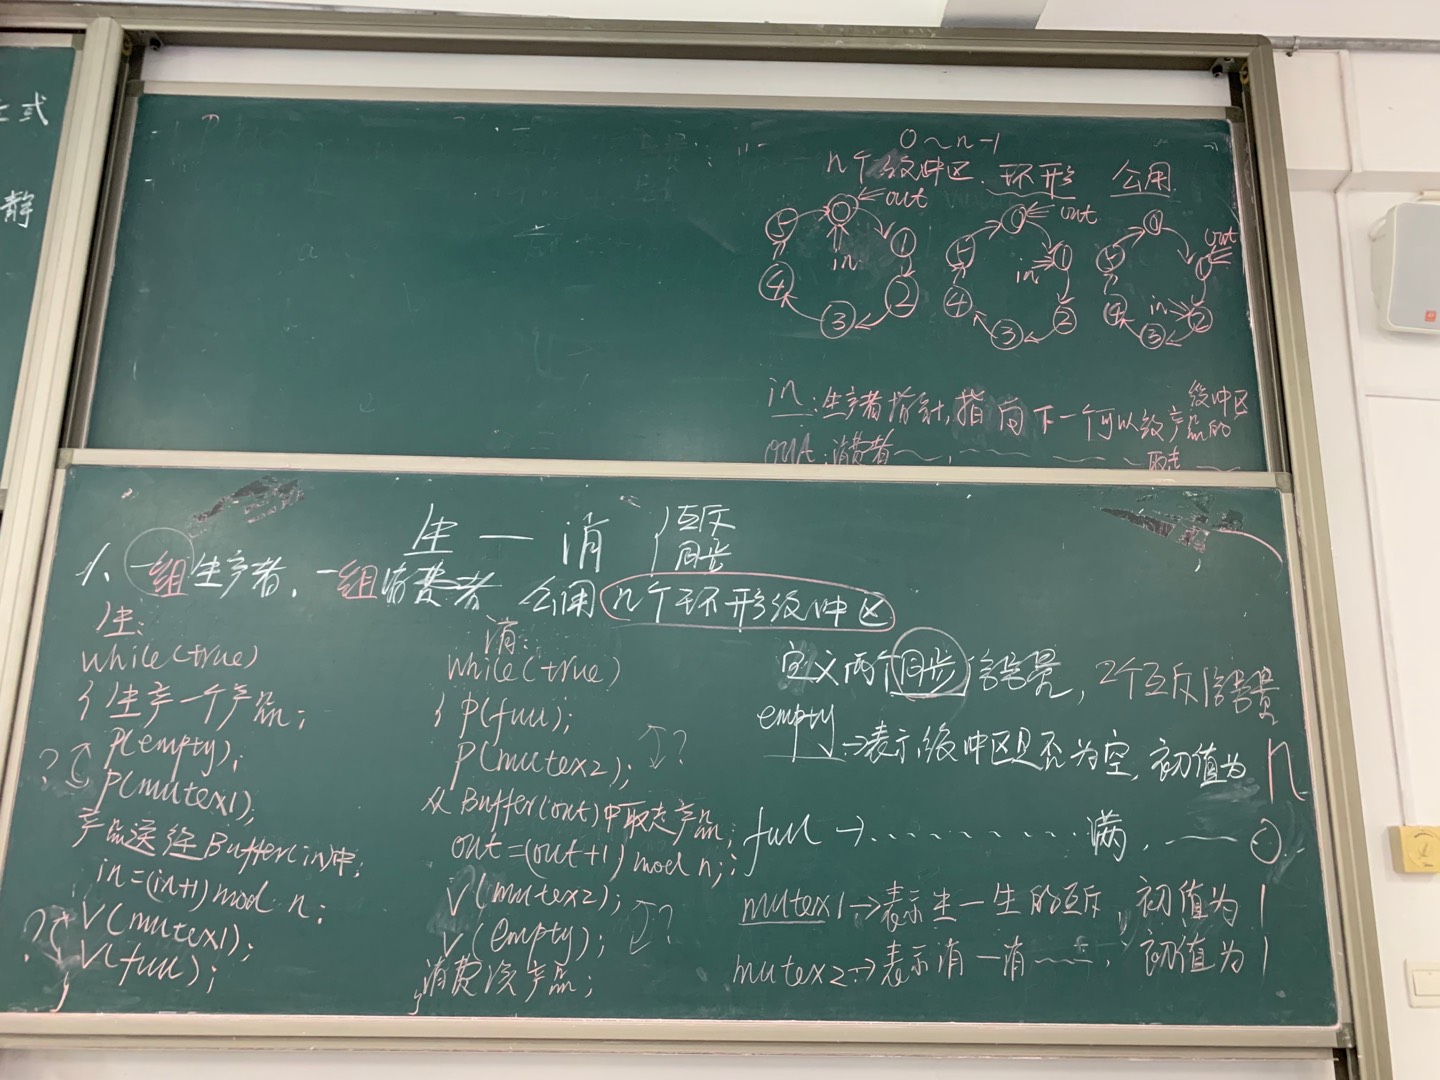 式
静
0~n-1
n个缓冲区 环形 公用
0 1 2 3 4 5 in out
0 1 2 3 4 5 in out
0 1 2 3 4 5 in out
in:生产者指针,指向下一个可以放产品的缓冲区
out:消费者~,~~~取走~
生一消 {互斥 同步
1、一组生产者、一组消费者 公用n个环形缓冲区
生:
while(true)
{生产一个产品;
P(empty);
?
P(mutex1);
产品送往Buffer(in)中;
in=(in+1) mod n;
V(mutex1);
?
V(full);
}
消:
while(true)
{P(full);
?
P(mutex2);
从Buffer(out)中取走产品;
out=(out+1) mod n;
V(mutex2);
?
V(empty);
消费该产品;
}
定义两个同步信号量,2个互斥信号量
empty→表示缓冲区是否为空,初值为n
full→........满,——0
mutex1→表示生一生的互斥,初值为1
mutex2→表示消一消~~,初值为1